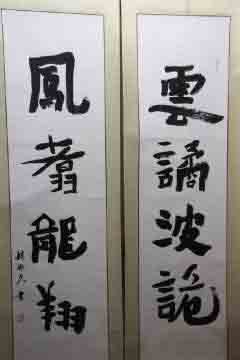 雲譎波詭
鳳翥龍翔